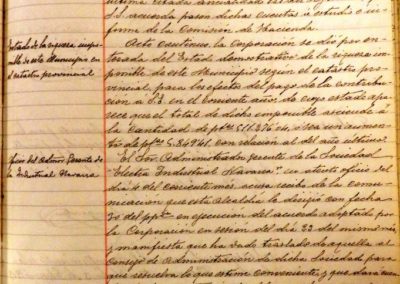 S.S. acuerda pasen dichas cuentas á estudio é in-
forme de la Comisión de Hacienda.
Estado de la riqueza impo-
nible de este Municipio en
el catastro provincial
Acto continuo, la Corporación se dió por en-
terada del Estado demostrativo de la riqueza im-
ponible de este Municipio según el catastro pro-
vincial, para los efectos del pago de la contribu-
ción á S.E. en el corriente año; de cuyo estado apa-
rece que el total de dicho imponible asciende á
la cantidad de ptas
ó sea un aumen-
to de ptas
con relación al del año último.
Oficio del Admor. Gerente de
la Industrial Navarra
El Sor. Administrador Gerente de la Sociedad
"Electra Industrial Navarra" en atento oficio del
día 4 del corriente mes, acusa recibo de la comu-
nicación que esta Alcaldía le dirigió con fecha
30 del ppdo. en ejecución del acuerdo adoptado por
la Corporación en sesión del día 23 del mismo mes,
y manifiesta que ha dado traslado de aquella al
Consejo de Administración de dicha Sociedad para
que resuelva lo que estime conveniente, y que dará cuen-